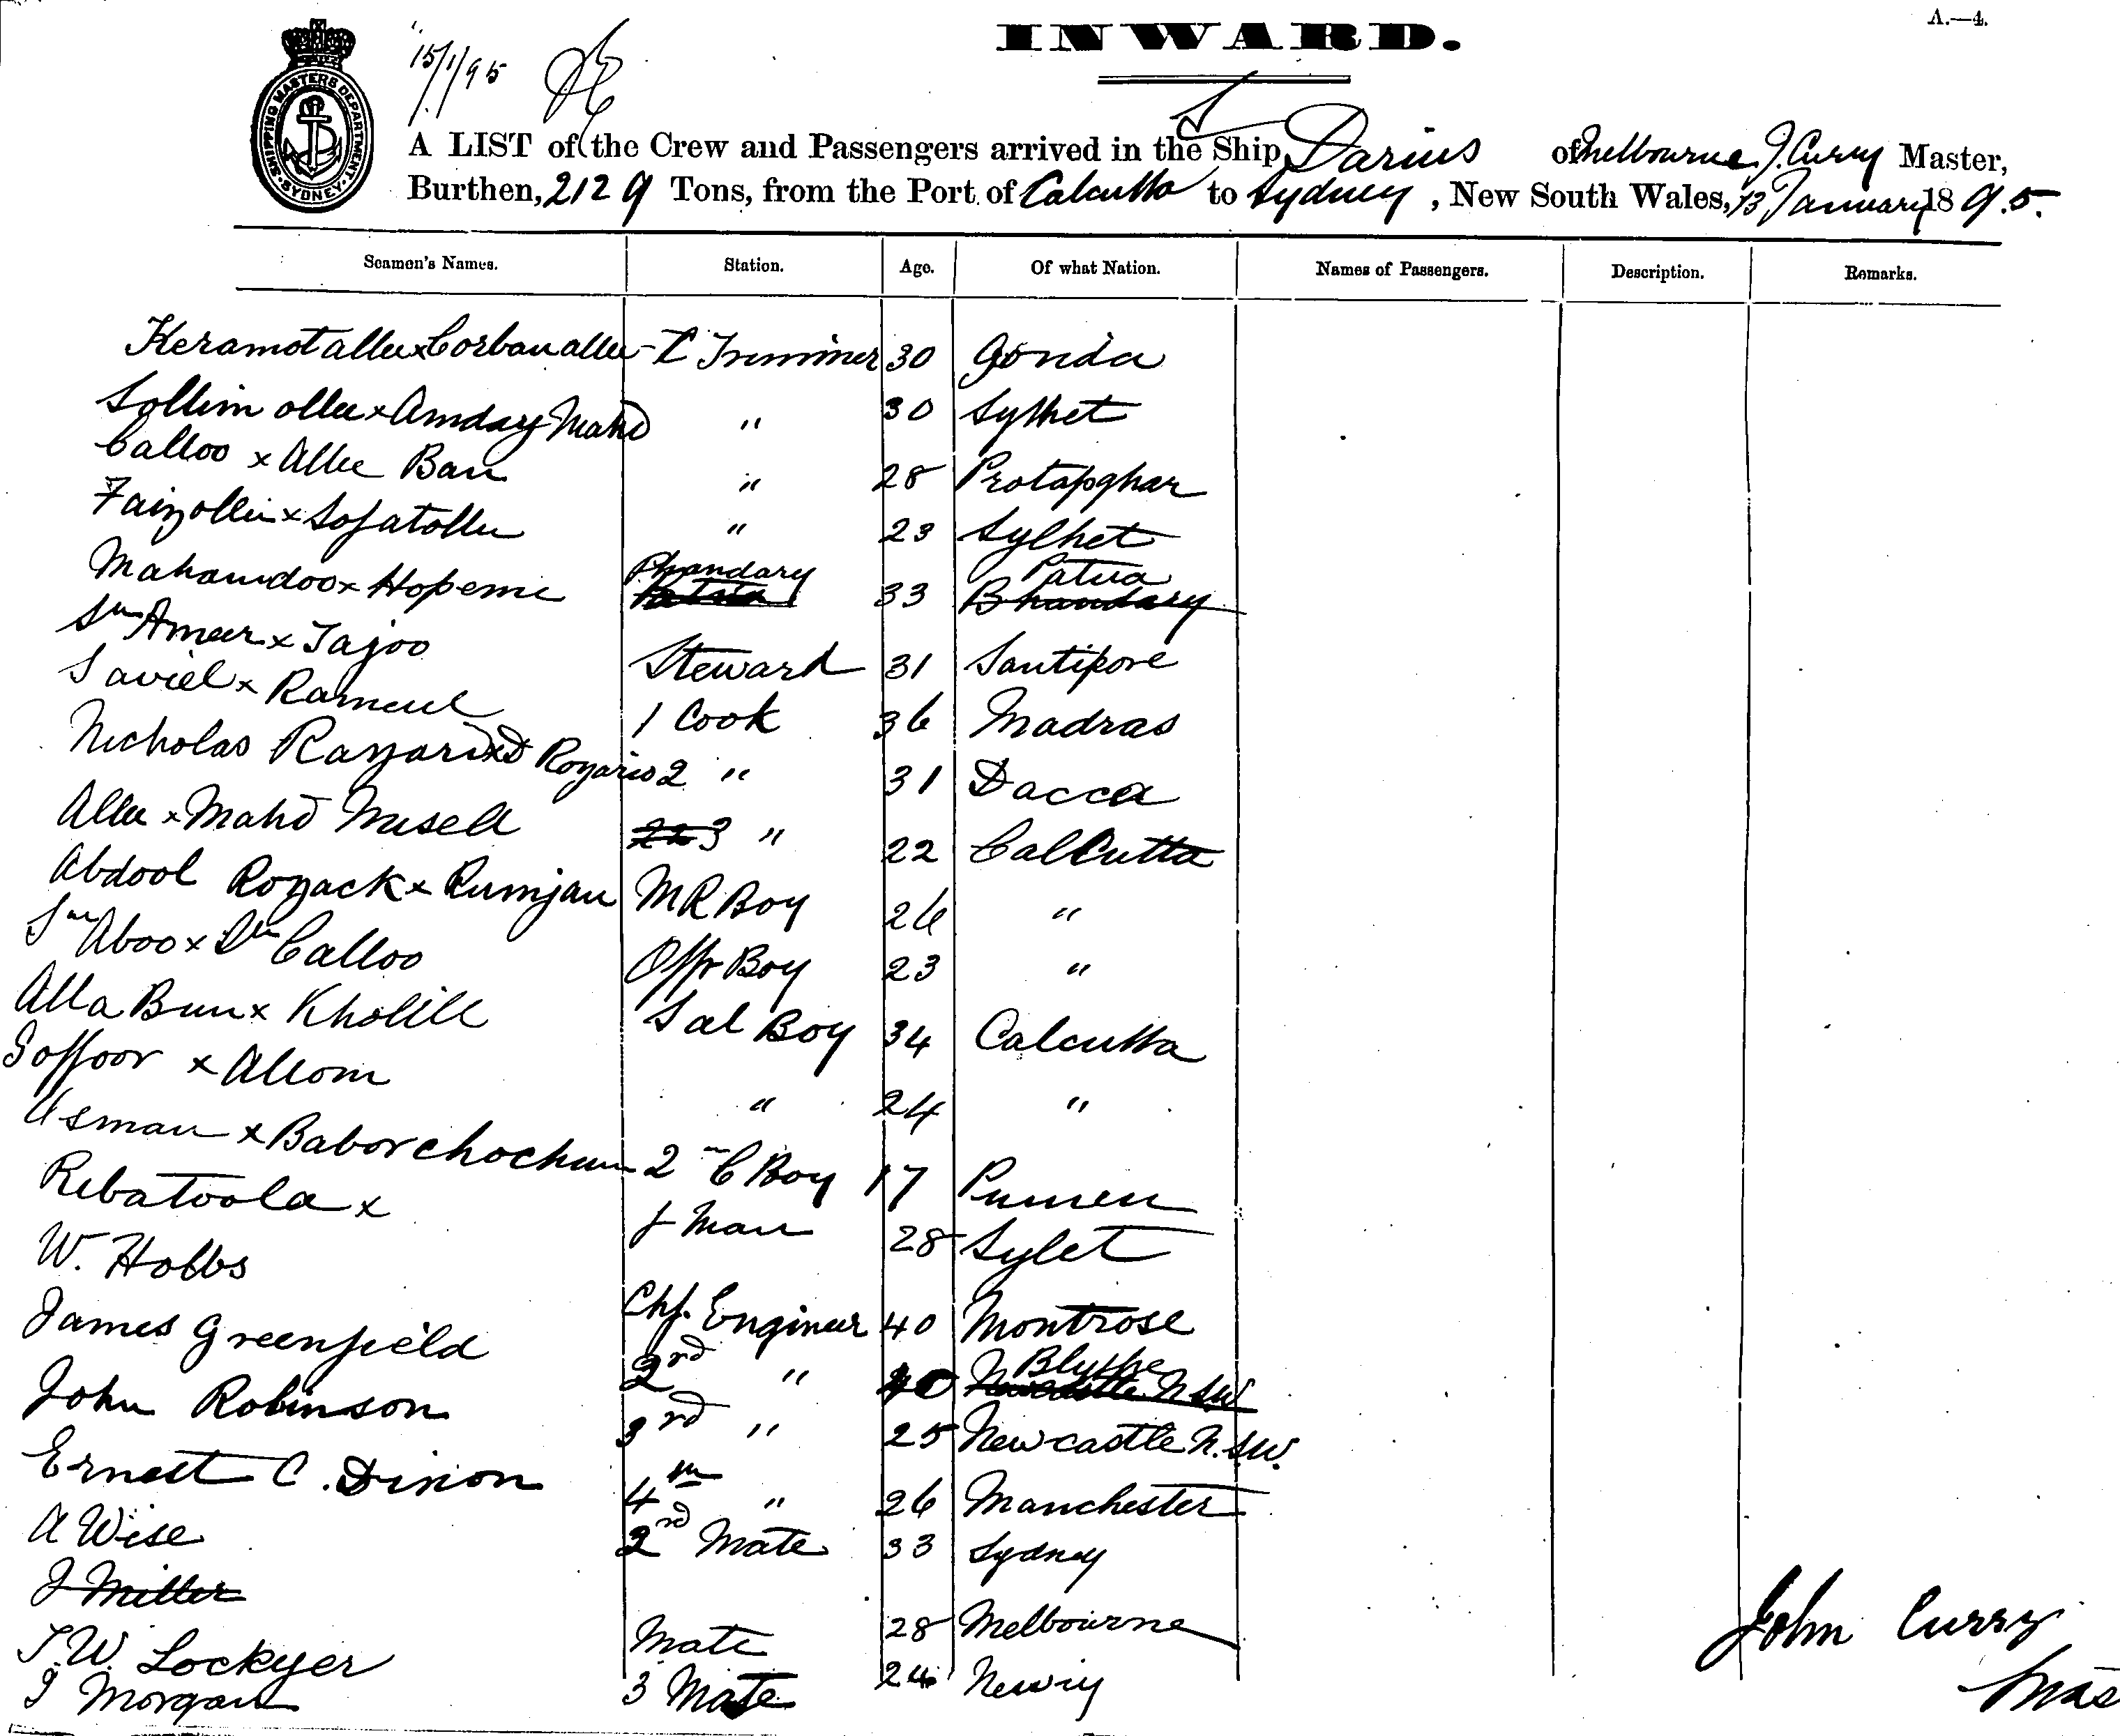 A.—4.
INWARD.
SHIPPING MASTERS DEPARTMENT. SYDNEY.
15/1/95
A LIST of the Crew and Passengers arrived in the Ship Darius of Melbourne, J. Curry Master,
Burthen, 2129 Tons, from the Port of Calcutta to Sydney, New South Wales, 13 January 1895.
Seamen's Names. Station. Age. Of what Nation. Names of Passengers. Description. Remarks.
Keramotallee x Corbanallee C Trimmer 30 Gonda
Sollim ollee x Amday Mahd " 30 Sylhet
Calloo x Allee Bau " 28 Protapghar
Faizollee x Sofatollee " 23 Sylhet
Mahamdoo x Hopeme Bhandary Patna 33 Patna Bhandary
Sk Ameer x Tajoo Steward 31 Santipore
Saviel x Rameul 1 Cook 36 Madras
Nicholas Rozario x D Rozario 2 " 31 Dacca
Allee x Mahd Musell 3 " 22 Calcutta
Abdool Rozack x Rumjan MR Boy 26 "
Sk Aboo x Sk Calloo Offr Boy 23 "
Alla Bux x Kholill Sal Boy 34 Calcutta
Goffoor x Allom " 24 "
Usman x Baborchochun 2 C Boy 17
Rebatoola x f Man 28 Sylet
W. Hobbs Chf. Engineer 40 Montrose
James Greenfield 2nd " 40 Blythe Newcastle N.S.W
John Robinson 3rd " 25 Newcastle N.S.W.
Ernest C. Dixon 4th " 26 Manchester
A Wise 2nd Mate 33 Sydney
J Miller
T.W. Lockyer Mate 28 Melbourne
J Morgan 3 Mate 24 Newry
John Curry
Mas